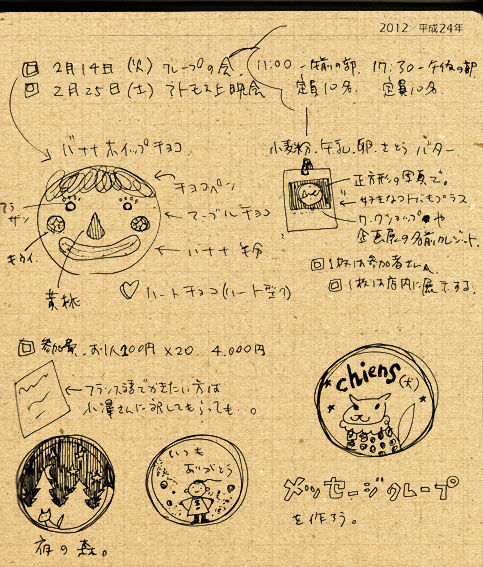 2012 / 平成24年
2月14日(火) クレープの会 11:00 – 午前の部 17:30 – 午後の部
2月25日(土) アトモス上映会 定員10名 定員10名
バナナ ホイップ チョコ
小麦粉、牛乳、卵、さとう バター
チョコペン
正方形の写真で。
アラザン
マーブルチョコ
好きなフォトにもプラス
ワークショップや
キウイ
バナナ
企画展の名前クレジット
黄桃
1枚は参加者さんへ
ハートチョコ(ハート型?)
1枚は店内に展示する。
参加費 お1人 100円 ×20 4,000円
chiens
(犬)
フランス語でかきたい方は
小澤さんに訳してもらっても…。
いつも
ありがとう
メッセージクレープ
を作ろう。
夜の森。